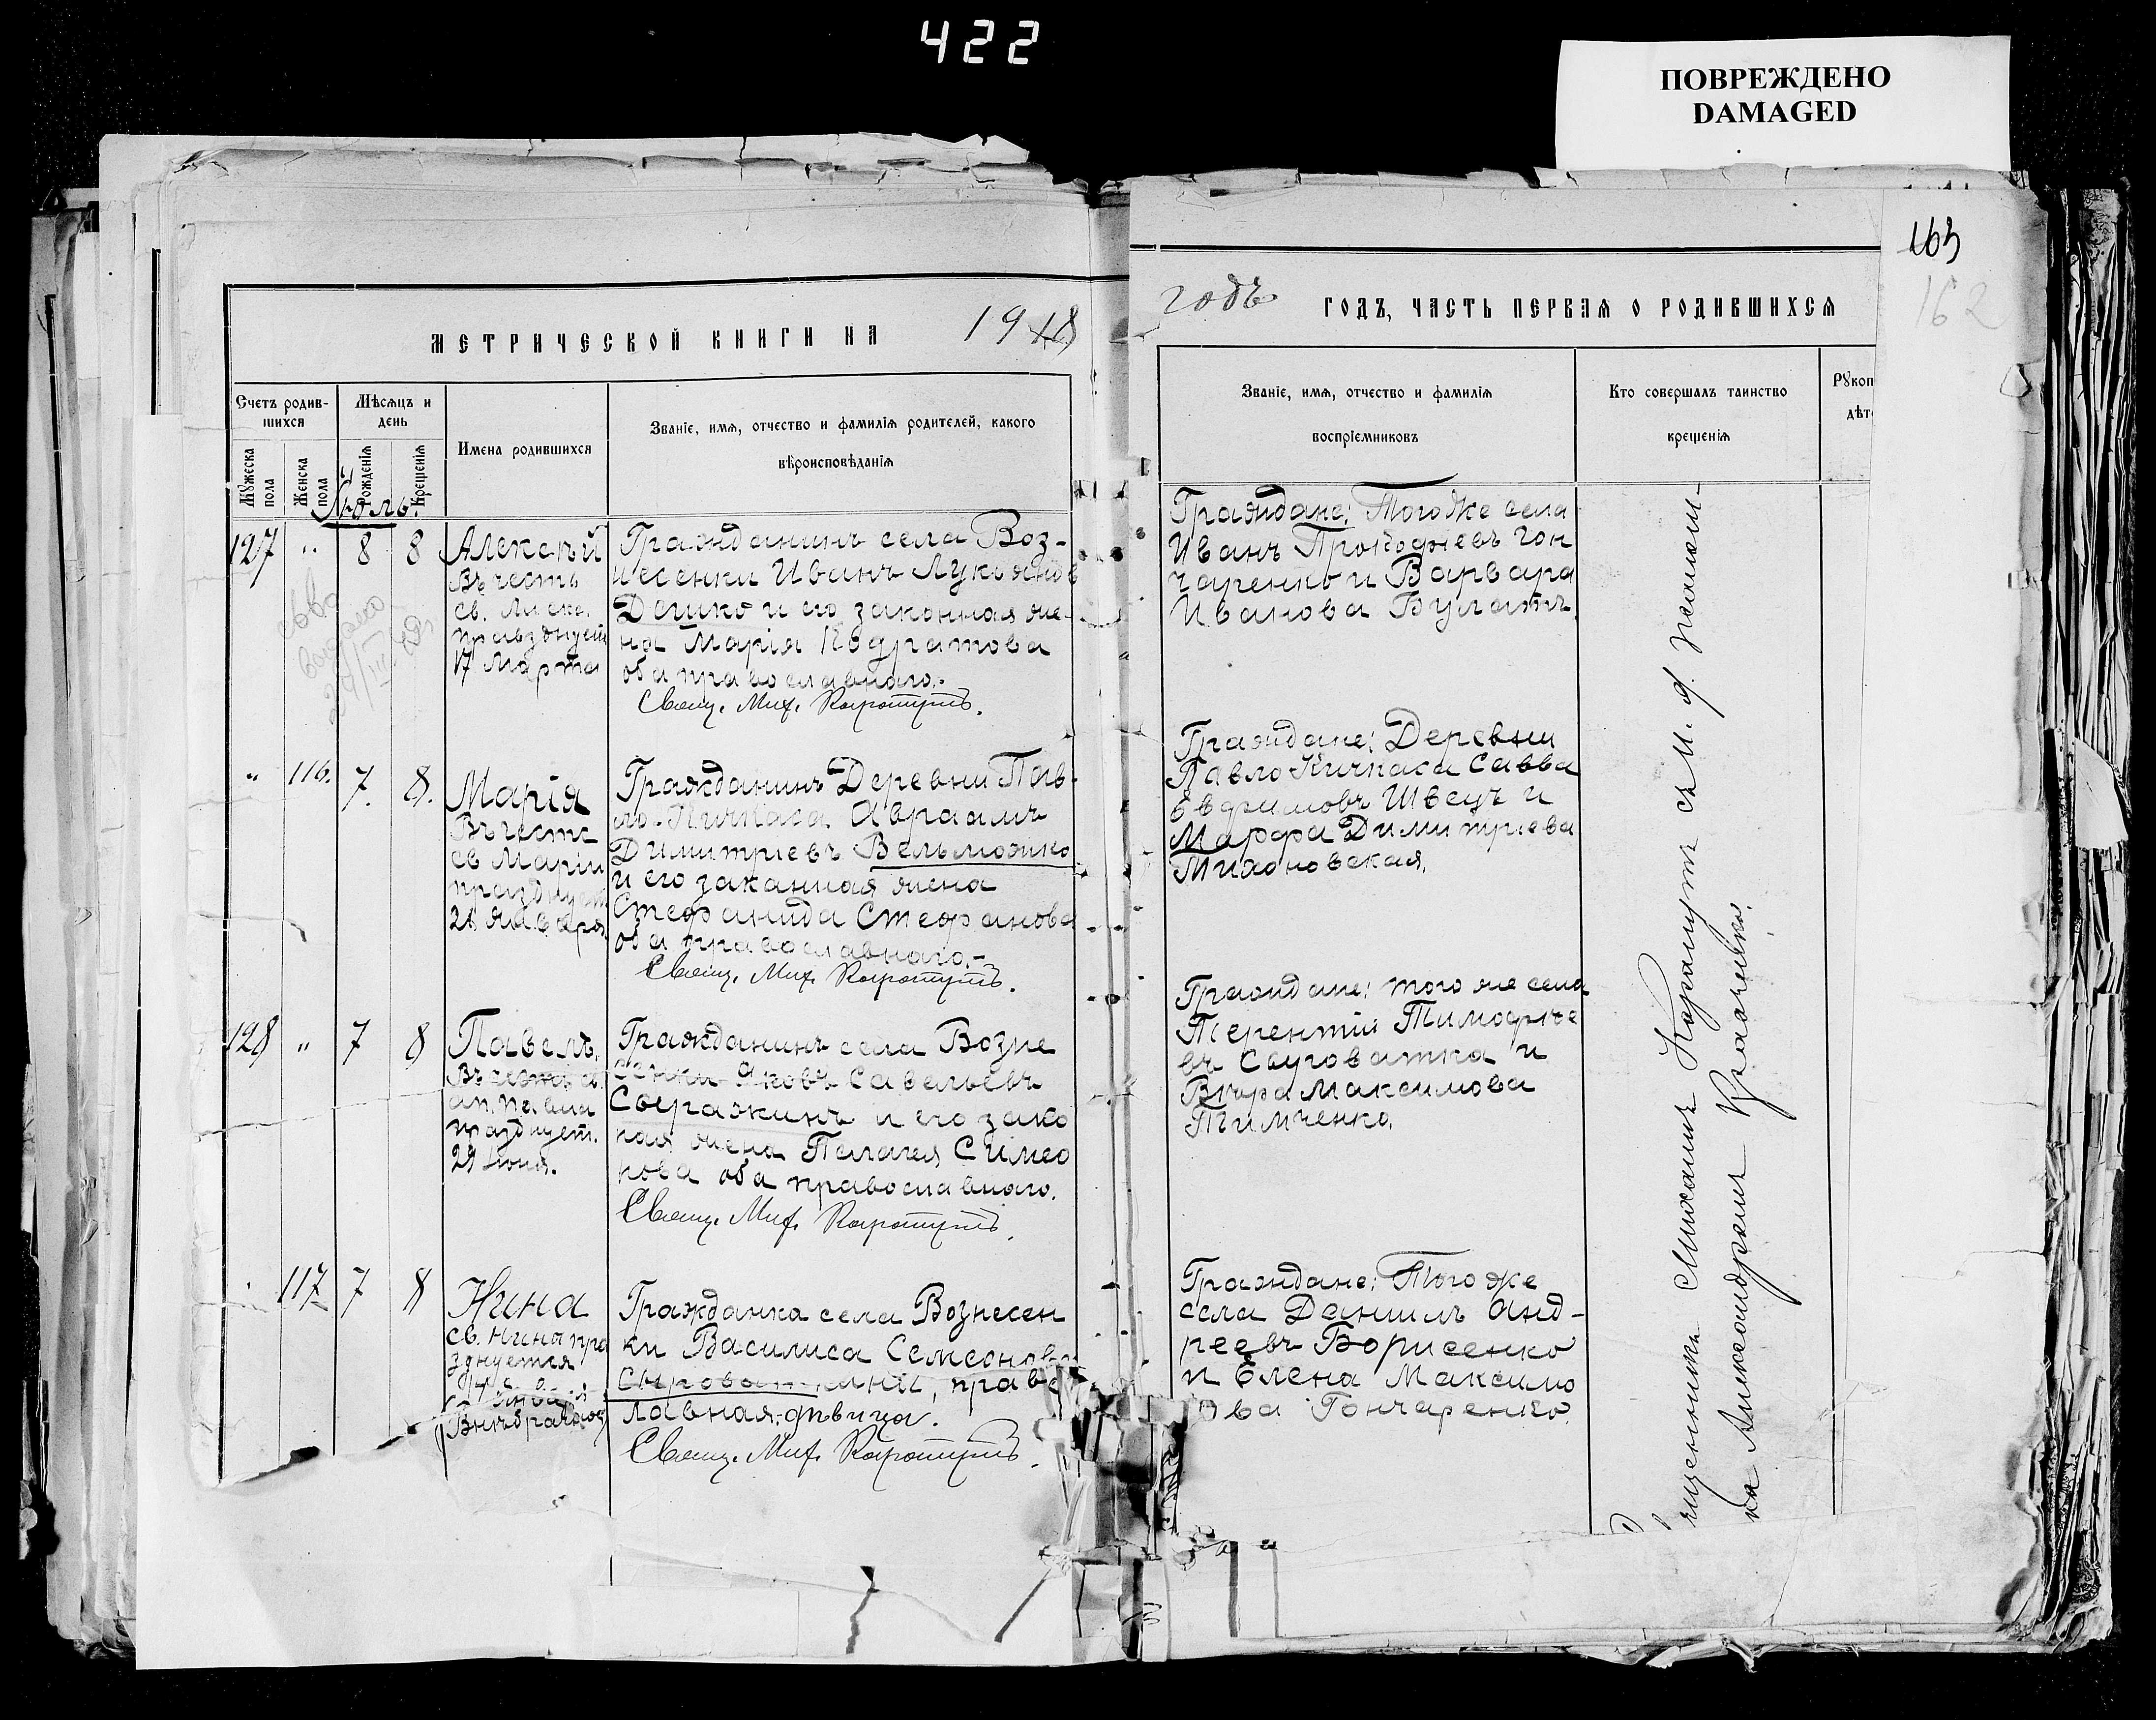 422
ПОВРЕЖДЕНО
DAMAGED
163
162
МЕТРИЧЕСКОЙ КНИГИ НА 1918
годъ ГОДЪ, ЧАСТЬ ПЕРВАЯ О РОДИВШИХСЯ
Счетъ родив-
шихся
Мѣсяцъ и
день
Мужеска
пола
Женска
пола
Рожденія
Крещенія
Имена родившихся
Званіе, имя, отчество и фамилія родителей, какого
вѣроисповѣданія
Званіе, имя, отчество и фамилія
воспріемниковъ
Кто совершалъ таинство
крещенія
Рукоп
дѣт
Іюль.
127 " 8 8
Алексѣй
Въ честь
св. Алекс.
празднует
17 Марта
Гражданинъ села Воз-
несенки Иванъ Лукьяновъ
Дешко и его законная же-
на Марія Кодратова
оба православного.
Свящ. Мих. Корошупъ.
Граждане: Того же села
Иванъ Прокофьевъ Гон
чаренко и Варвара
Иванова Булатъ.
" 116. 7. 8.
Марія
Въ честь
св Маріи
празднует
Января
Гражданинъ Деревни Пав-
ло-Кичкаса Авраамъ
Димитріевъ Вельможко
и его заканная жена
Стефанида Стефанова
оба православного.-
Свящ. Мих. Корошупъ.
Граждане: Деревни
Павло Кичкаса Савва
Евфимовъ Швецъ и
Марфа Димитріева
Тихоновская.
128 " 7 8
Павелъ.
Въ честь св.
ап. Павла
празднует.
29 Іюня.
Гражданинъ села Возне
сенки Яковъ Савельевъ
Сопражинъ и его зако
ная жена Пелагея Симео
нова оба православного.
Свящ. Мих. Корошупъ.
Граждане: того же села
Терентій Тимофѣе
въ Сыроватка и
Вѣра Максимова
Тимченко.
117 7 8
Нина
св. Нина пра
зднуется
Внѣбрачная
Гражданка села Вознесен
ки Василиса Семеонова
православная девица.
Свящ. Мих. Корошупъ.
Граждане: Того же
села Даниилъ Анд-
реевъ Борисенко
и Елена Максимо
ова Гончаренко.
Священникъ Михаилъ Корошупъ съ И. д. псалом-
ка Александромъ